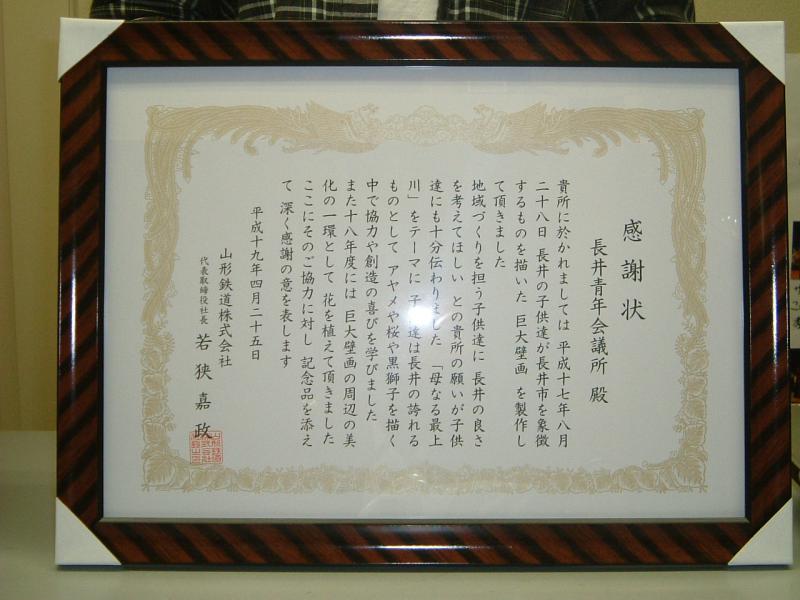 感謝状
長井青年会議所 殿
貴所に於かれましては 平成十七年八月
二十八日 長井の子供達が長井市を象徴
するものを描いた 巨大壁画 を製作し
て頂きました
地域づくりを担う子供達に 長井の良さ
を考えてほしい との貴所の願いが子供
達にも十分伝わりました 「母なる最上
川」をテーマに 子供達は長井の誇れる
ものとして アヤメや桜や黒獅子を描く
中で協力や創造の喜びを学びました
また十八年度には 巨大壁画の周辺の美
化の一環として 花を植えて頂きました
ここにそのご協力に対し 記念品を添え
て 深く感謝の意を表します
平成十九年四月二十五日
山形鉄道株式会社
代表取締役社長 若狹嘉政